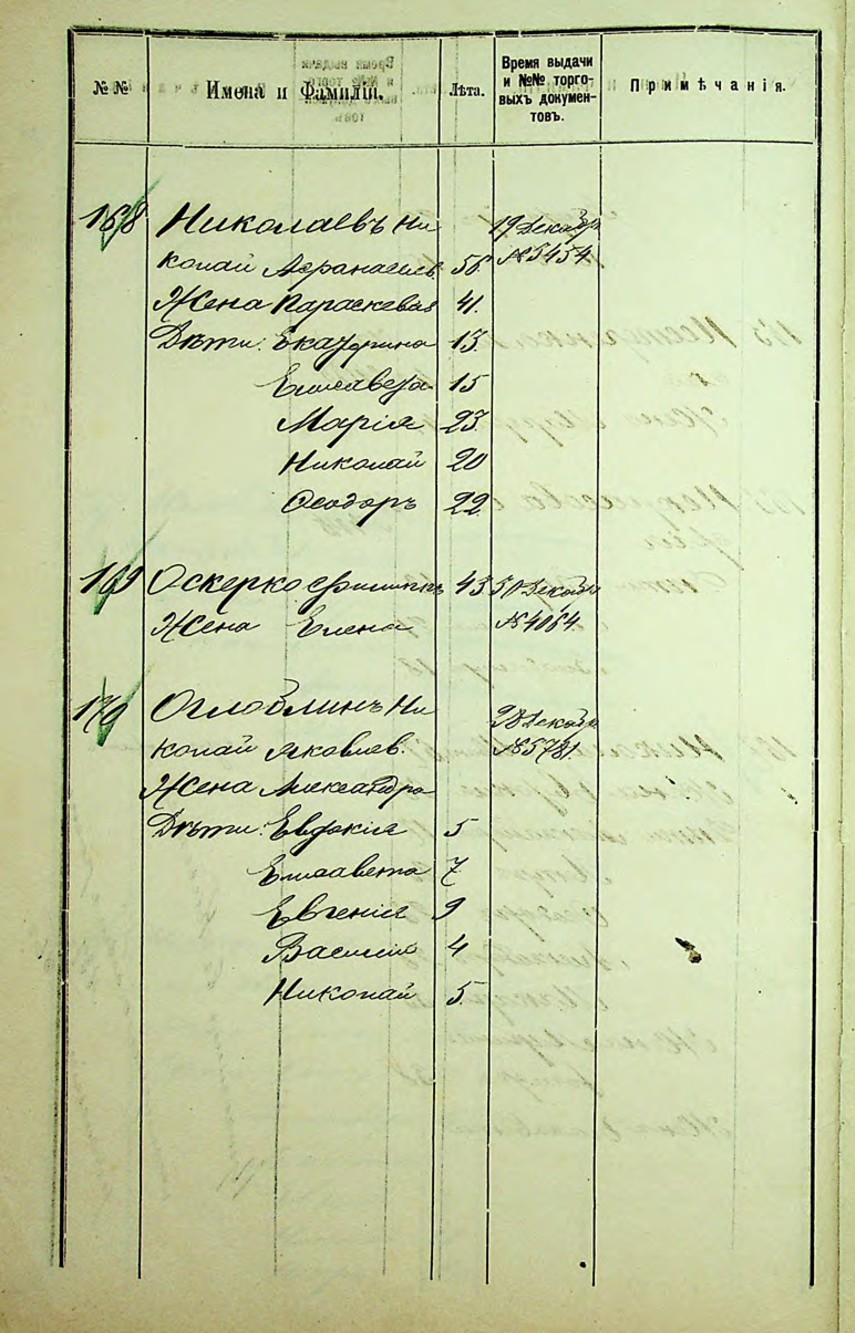 №№ Имена и Фамиліи. Лѣта. Время выдачи и №№ торго-выхъ докумен-товъ. Примѣчанія.
168 Николаевъ Ни 19 Декабр
колай Афанасьев. 56 № 5454
Жена Параскевая 41.
Дѣти: Екатерина 13.
Елисавета 15
Марія 23.
Николай 20
Ѳеодоръ 22.
169 Оскерко Филиппъ 43 30 Декабр
Жена Елена № 4064.
170 Оглоблинъ Ни 28 Декабр
колай Яковлев. № 5781.
Жена Александра
Дѣти: Евдокія 5
Елисавета 7
Евгенія 9
Василій 4
Николай 5.